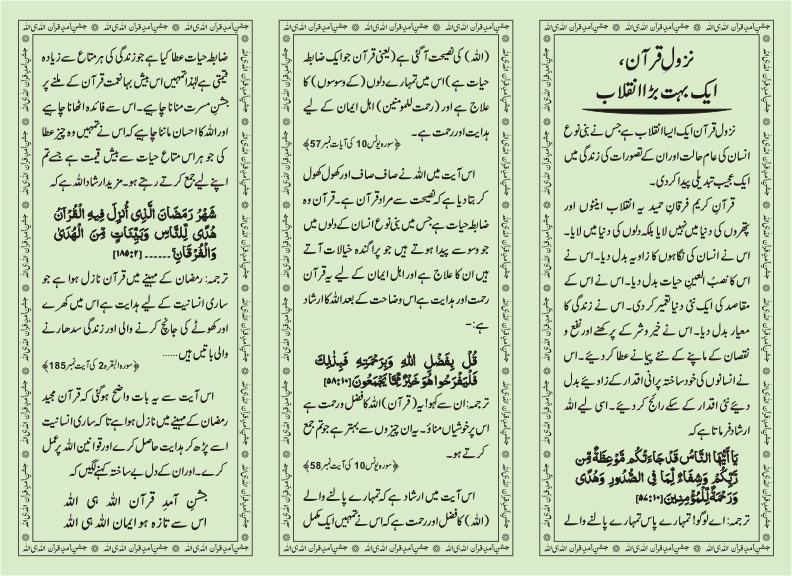 نزولِ قرآن،
ایک بہت بڑا انقلاب
نزول قرآن ایک ایسا انقلاب ہے جس نے بنی نوع
انسان کی عام حالت اور ان کے تصورات کی زندگی میں
ایک عجیب تبدیلی پیدا کر دی۔
قرآن کریم فرقانِ حمید یہ انقلاب اینٹوں اور
پتھروں کی دنیا میں نہیں لایا بلکہ دلوں کی دنیا میں لایا۔
اس نے انسان کی نگاہوں کا زاویہ بدل دیا۔ اس نے
اس کا نصبُ العین حیات بدل دیا۔ اس نے اس کے
مقاصد کی ایک نئی دنیا تعمیر کر دی۔ اس نے زندگی کا
معیار بدل دیا۔ اس نے خیر و شر کے پرکھنے اور نفع و
نقصان کے ماپنے کے نئے پیمانے عطا کر دیئے۔ اس
نے انسانوں کی خود ساختہ پرانی اقدار کے زاویئے بدل
دیئے نئی اقدار کے سکے رائج کر دیئے۔ اسی لیے اللہ
ارشاد فرماتا ہے کہ
يَا أَيُّهَا النَّاسُ قَدْ جَاءَتْكُم مَّوْعِظَةٌ مِّن
رَّبِّكُمْ وَشِفَاءٌ لِّمَا فِي الصُّدُورِ وَهُدًى
وَرَحْمَةٌ لِّلْمُؤْمِنِينَ [۱۰:۵۷]
ترجمہ: اے لوگو! تمہارے پاس تمہارے پالنے والے
(اللہ) کی نصیحت آ گئی ہے (یعنی قرآن جو ایک ضابطہ
حیات ہے) اس میں تمہارے دلوں (کے وسوسوں) کا
علاج ہے اور (رحمت للمومنین) اہل ایمان کے لیے
ہدایت اور رحمت ہے۔
﴿سورہ یونس 10 کی آیات نمبر 57﴾
اس آیت میں اللہ نے صاف صاف اور کھول کھول
کر بتا دیا ہے کہ نصیحت سے مراد قرآن ہے۔ قرآن وہ
ضابطہ حیات ہے جس میں بنی نوع انسان کے دلوں میں
جو وسوسے پیدا ہوتے ہیں جو پراگندہ خیالات آتے
ہیں ان کا علاج ہے اور اہل ایمان کے لیے یہ قرآن
رحمت اور ہدایت ہے اس وضاحت کے بعد اللہ کا ارشاد
ہے:۔
قُلْ بِفَضْلِ اللَّهِ وَبِرَحْمَتِهِ فَبِذَٰلِكَ
فَلْيَفْرَحُوا هُوَ خَيْرٌ مِّمَّا يَجْمَعُونَ [۱۰:۵۸]
ترجمہ: ان سے کہو! یہ (قرآن) اللہ کا فضل و رحمت ہے
اس پر خوشیاں مناؤ۔ یہ ان چیزوں سے بہتر ہے جو تم جمع
کرتے ہو۔
﴿سورہ یونس 10 کی آیت نمبر 58﴾
اس آیت میں ارشاد ہے کہ تمہارے پالنے والے
(اللہ) کا فضل اور رحمت ہے کہ اس نے تمہیں ایک مکمل
ضابطہ حیات عطا کیا ہے جو زندگی کی ہر متاع سے زیادہ
قیمتی ہے لہٰذا تمہیں اس بیش بہا نعمت قرآن کے ملنے پر
جشنِ مسرت منانا چاہیے۔ اس سے فائدہ اٹھانا چاہیے
اور اللہ کا احسان ماننا چاہیے کہ اس نے تمہیں وہ چیز عطا
کی جو ہر اس متاع حیات سے بیش قیمت ہے جسے تم
اپنے لیے جمع کرتے رہتے ہو۔ مزید ارشاد اللہ ہے کہ
شَهْرُ رَمَضَانَ الَّذِي أُنزِلَ فِيهِ الْقُرْآنُ
هُدًى لِّلنَّاسِ وَبَيِّنَاتٍ مِّنَ الْهُدَىٰ
وَالْفُرْقَانِ ۚ ...... [۲:۱۸۵]
ترجمہ: رمضان کے مہینے میں قرآن نازل ہوا ہے جو
ساری انسانیت کے لیے ہدایت ہے اس میں کھرے
اور کھوٹے کی جانچ کرنے والی اور زندگی سدھارنے
والی باتیں ہیں...... ﴿سورہ البقرہ 2 کی آیت نمبر 185﴾
اس آیت سے یہ بات واضح ہو گئی کہ قرآن مجید
رمضان کے مہینے میں نازل ہوا ہے تا کہ ساری انسانیت
اسے پڑھ کر ہدایت حاصل کرے اور قوانین اللہ پر عمل
کرے۔ اور ان کے دل بے ساختہ کہنے لگیں کہ
جشنِ آمدِ قرآن اللہ ہی اللہ
اس سے تازہ ہو ایمان اللہ ہی اللہ